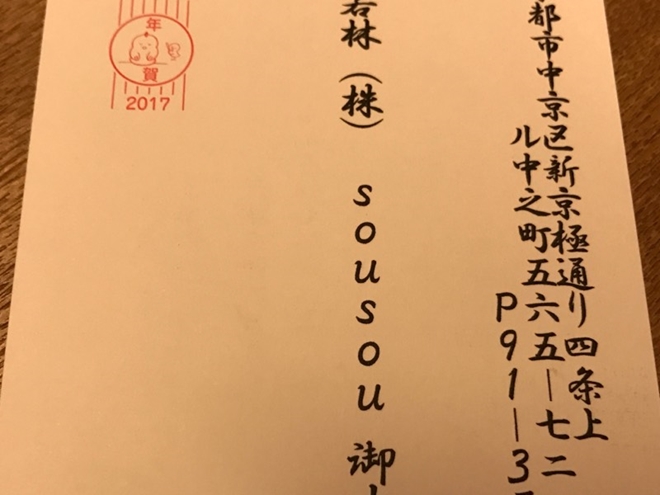 都市中京区新京極通り四条上
ル中之町五六五|七二
P91|3
若林(株) sousou 御
年
賀
2017